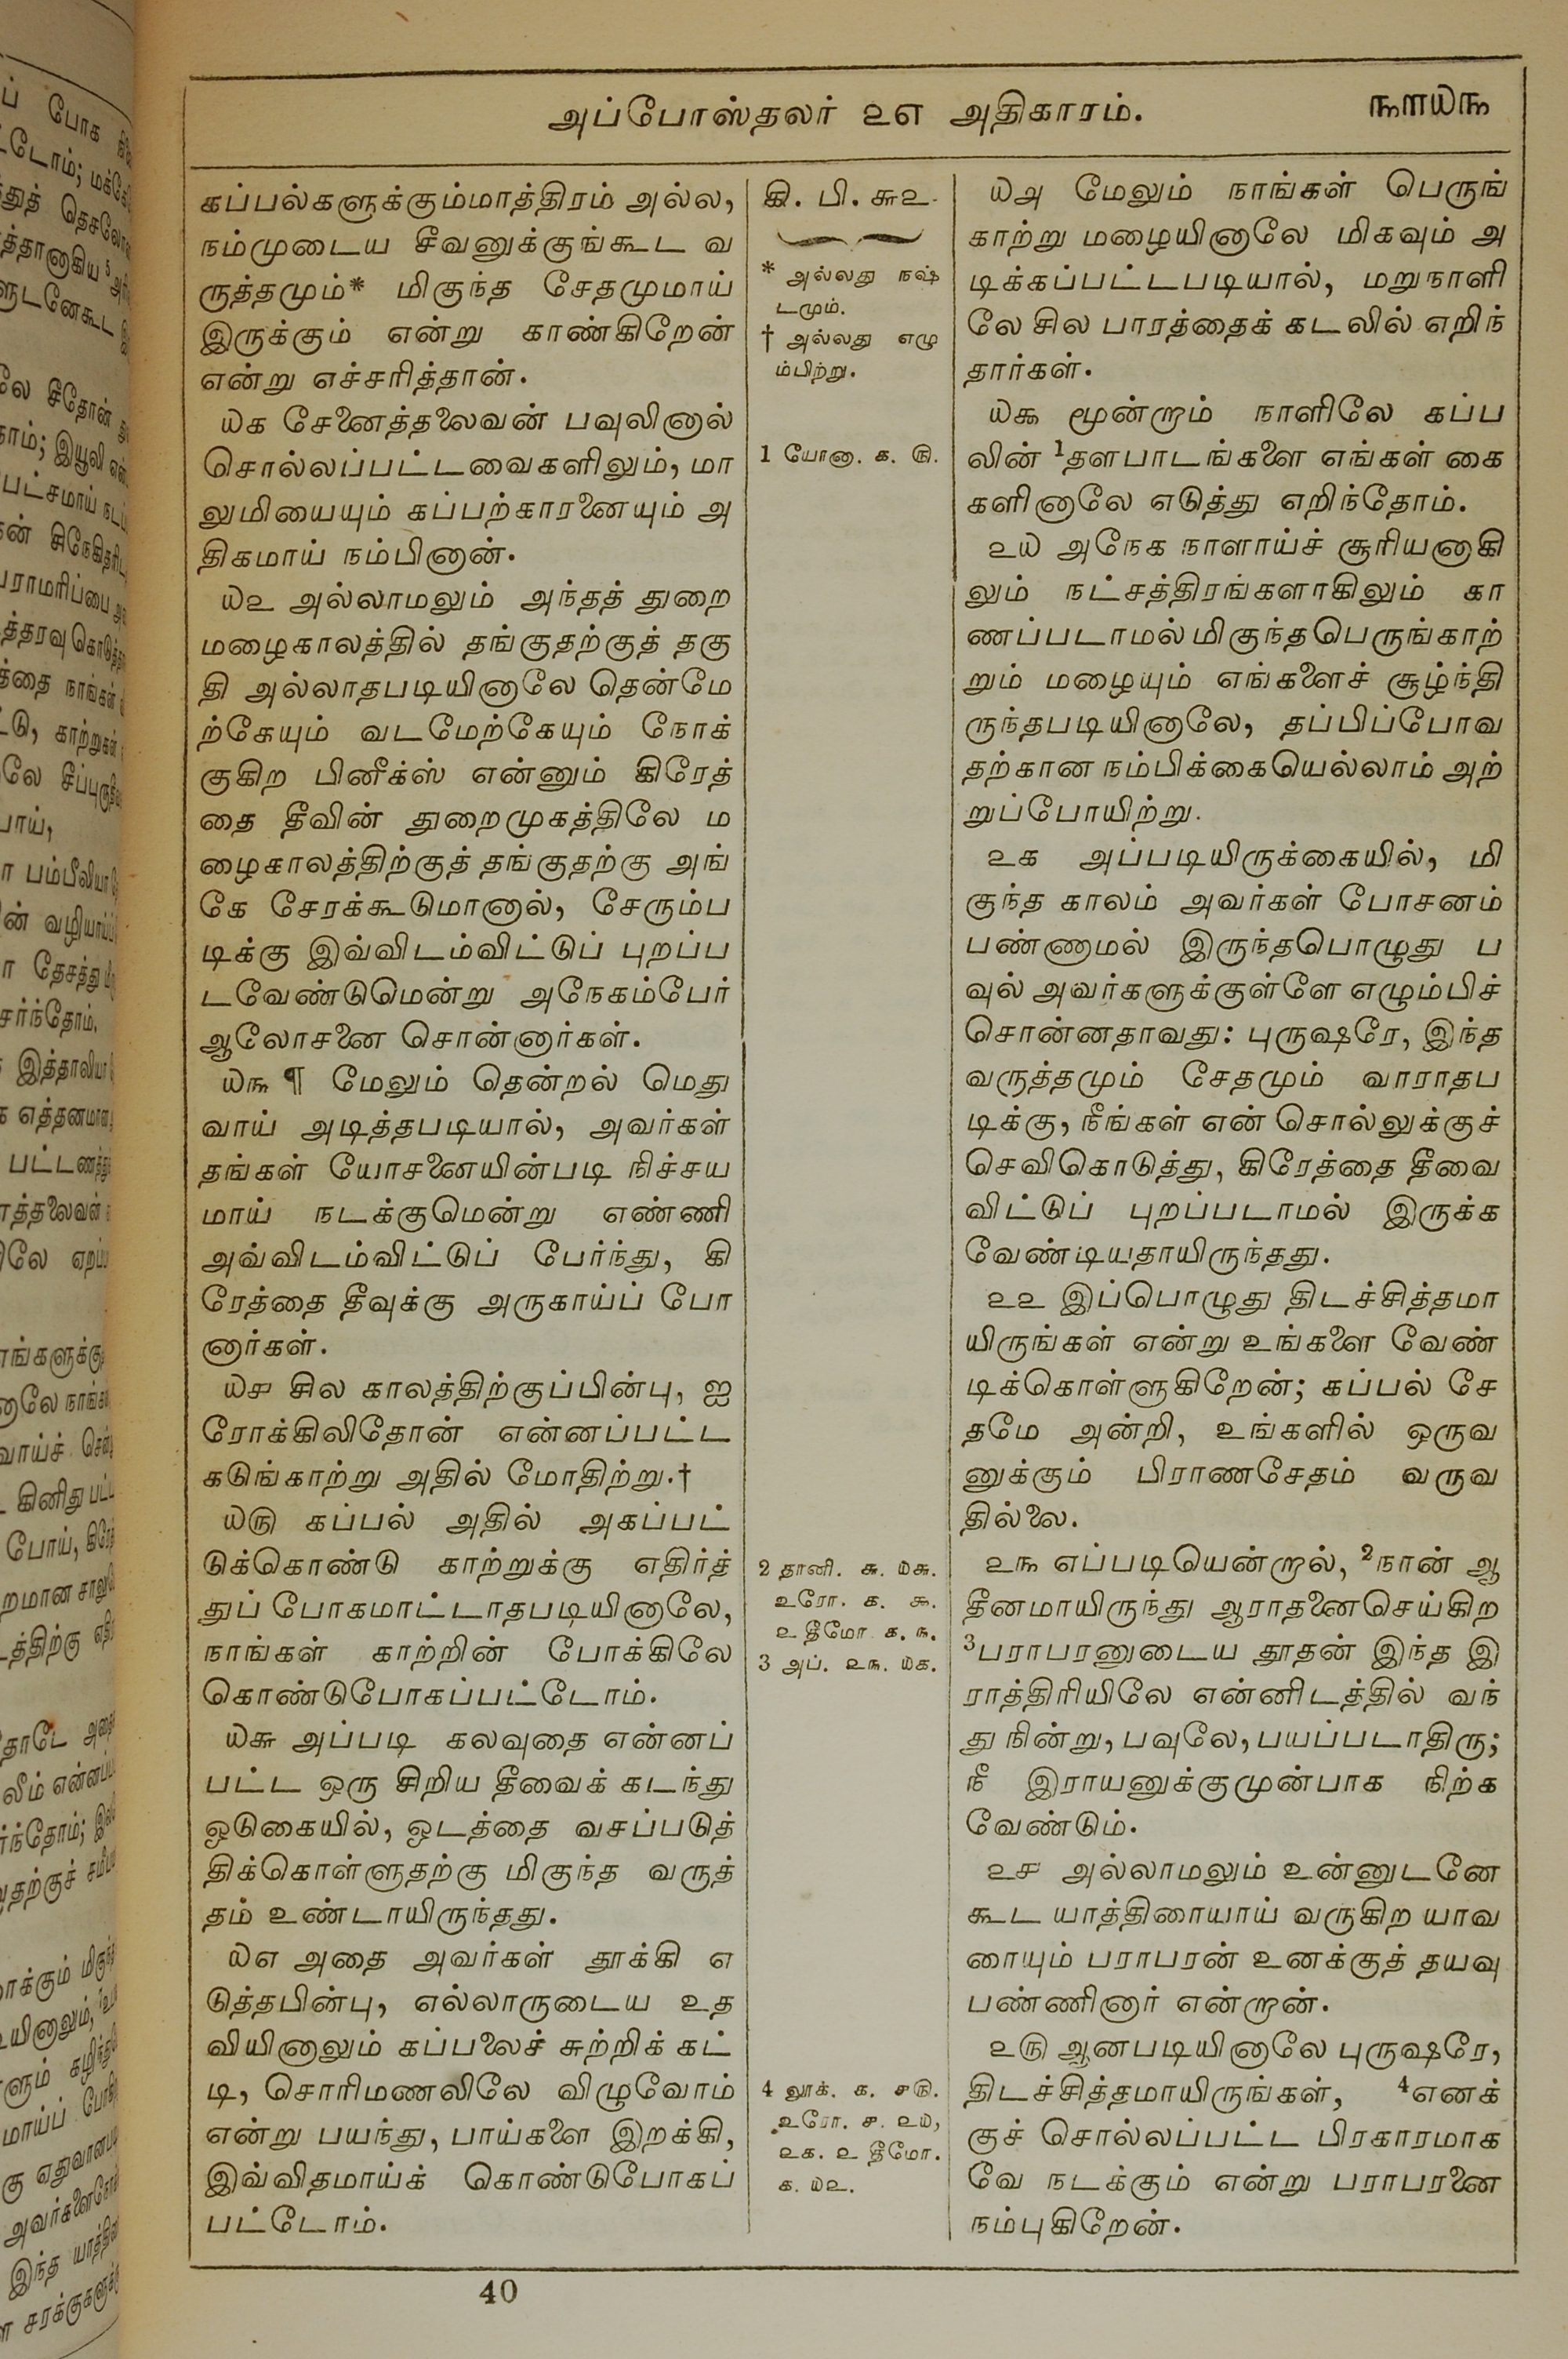 அப்போஸ்தலர் ௨௭ அதிகாரம். ௩௱௰௩
கப்பல்களுக்கும்மாத்திரம் அல்ல,
நம்முடைய சீவனுக்குங்கூட வ
ருத்தமும்* மிகுந்த சேதமுமாய்
இருக்கும் என்று காண்கிறேன்
என்று எச்சரித்தான்.
௰௧ சேனைத்தலைவன் பவுலினால்
சொல்லப்பட்டவைகளிலும், மா
லுமியையும் கப்பற்காரனையும் அ
திகமாய் நம்பினான்.
௰௨ அல்லாமலும் அந்தத் துறை
மழைகாலத்தில் தங்குதற்குத் தகு
தி அல்லாதபடியினாலே தென்மே
ற்கேயும் வடமேற்கேயும் நோக்
குகிற பினீக்ஸ் என்னும் கிரேத்
தை தீவின் துறைமுகத்திலே ம
ழைகாலத்திற்குத் தங்குதற்கு அங்
கே சேரக்கூடுமானால், சேரும்ப
டிக்கு இவ்விடம்விட்டுப் புறப்ப
டவேண்டுமென்று அநேகம்பேர்
ஆலோசனை சொன்னார்கள்.
௰௩ ¶ மேலும் தென்றல் மெது
வாய் அடித்தபடியால், அவர்கள்
தங்கள் யோசனையின்படி நிச்சய
மாய் நடக்குமென்று எண்ணி
அவ்விடம்விட்டுப் பேர்ந்து, கி
ரேத்தை தீவுக்கு அருகாய்ப் போ
னார்கள்.
௰௪ சில காலத்திற்குப்பின்பு, ஐ
ரோக்கிலிதோன் என்னப்பட்ட
கடுங்காற்று அதில் மோதிற்று.†
௰௫ கப்பல் அதில் அகப்பட்
டுக்கொண்டு காற்றுக்கு எதிர்த்
துப் போகமாட்டாதபடியினாலே,
நாங்கள் காற்றின் போக்கிலே
கொண்டுபோகப்பட்டோம்.
௰௬ அப்படி கலவுதை என்னப்
பட்ட ஒரு சிறிய தீவைக் கடந்து
ஓடுகையில், ஓடத்தை வசப்படுத்
திக்கொள்ளுதற்கு மிகுந்த வருத்
தம் உண்டாயிருந்தது.
௰௭ அதை அவர்கள் தூக்கி எ
டுத்தபின்பு, எல்லாருடைய உத
வியினாலும் கப்பலைச் சுற்றிக் கட்
டி, சொரிமணலிலே விழுவோம்
என்று பயந்து, பாய்களை இறக்கி,
இவ்விதமாய்க் கொண்டுபோகப்
பட்டோம்.
கி. பி. ௬௨.
* அல்லது நஷ்
டமும்.
† அல்லது எழு
ம்பிற்று.
1 யோனா. ௧. ௫.
2 தானி. ௬. ௰௬.
உரோ. ௧. ௯.
௨ தீமோ ௧. ௩.
3 அப். ௨௩. ௰௧.
4 லூக். ௧. ௪௫.
உரோ. ௪. ௨௰,
௨௧. ௨ தீமோ.
௧. ௰௨.
௰௮ மேலும் நாங்கள் பெருங்
காற்று மழையினாலே மிகவும் அ
டிக்கப்பட்டபடியால், மறுநாளி
லே சில பாரத்தைக் கடலில் எறிந்
தார்கள்.
௰௯ மூன்றாம் நாளிலே கப்ப
லின் ¹தளபாடங்களை எங்கள் கை
களினாலே எடுத்து எறிந்தோம்.
௨௰ அநேக நாளாய்ச் சூரியனாகி
லும் நட்சத்திரங்களாகிலும் கா
ணப்படாமல் மிகுந்தபெருங்காற்
றும் மழையும் எங்களைச் சூழ்ந்தி
ருந்தபடியினாலே, தப்பிப்போவ
தற்கான நம்பிக்கையெல்லாம் அற்
றுப்போயிற்று.
௨௧ அப்படியிருக்கையில், மி
குந்த காலம் அவர்கள் போசனம்
பண்ணாமல் இருந்தபொழுது ப
வுல் அவர்களுக்குள்ளே எழும்பிச்
சொன்னதாவது: புருஷரே, இந்த
வருத்தமும் சேதமும் வாராதப
டிக்கு, நீங்கள் என் சொல்லுக்குச்
செவிகொடுத்து, கிரேத்தை தீவை
விட்டுப் புறப்படாமல் இருக்க
வேண்டியதாயிருந்தது.
௨௨ இப்பொழுது திடச்சித்தமா
யிருங்கள் என்று உங்களை வேண்
டிக்கொள்ளுகிறேன்; கப்பல் சே
தமே அன்றி, உங்களில் ஒருவ
னுக்கும் பிராணசேதம் வருவ
தில்லை.
௨௩ எப்படியென்றால், ²நான் ஆ
தீனமாயிருந்து ஆராதனைசெய்கிற
³பராபரனுடைய தூதன் இந்த இ
ராத்திரியிலே என்னிடத்தில் வந்
து நின்று, பவுலே, பயப்படாதிரு;
நீ இராயனுக்குமுன்பாக நிற்க
வேண்டும்.
௨௪ அல்லாமலும் உன்னுடனே
கூட யாத்திரையாய் வருகிற யாவ
ரையும் பராபரன் உனக்குத் தயவு
பண்ணினார் என்றான்.
௨௫ ஆனபடியினாலே புருஷரே,
திடச்சித்தமாயிருங்கள், ⁴எனக்
குச் சொல்லப்பட்ட பிரகாரமாக
வே நடக்கும் என்று பராபரனை
நம்புகிறேன்.
40